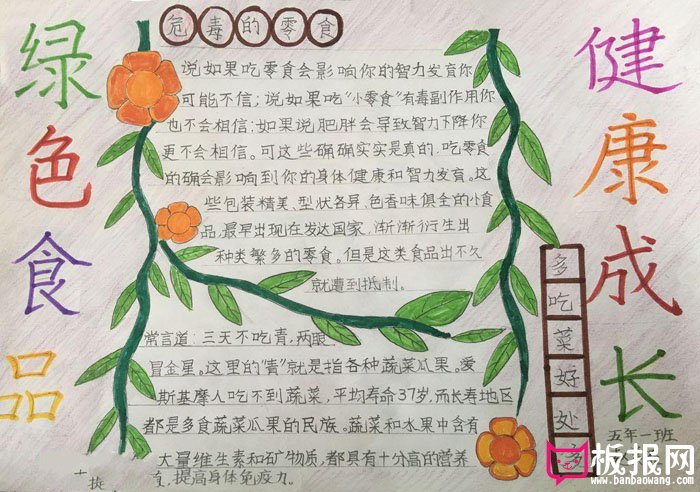 绿色食品
健康成长
危毒的零食
说如果吃零食会影响你的智力发育你
可能不信；说如果吃“小零食”有毒副作用你
也不会相信；如果说肥胖会导致智力下降你
更不会相信。可这些确确实实是真的，吃零食
的确会影响到你的身体健康和智力发育。这
些包装精美、型状各异、色香味俱全的小食
品，最早出现在发达国家，渐渐衍生出
种类繁多的零食。但是这类食品出不久
就遭到抵制。
多吃菜好处多
常言道：三天不吃青，两眼
冒金星。这里的“青”就是指各种蔬菜瓜果。爱
斯基摩人吃不到蔬菜，平均寿命37岁，而长寿地区
都是多食蔬菜瓜果的民族。蔬菜和水果中含有
大量维生素和矿物质，都具有十分高的营养
提高身体免疫力。
五年一班
板报网
www.banbaowang.com